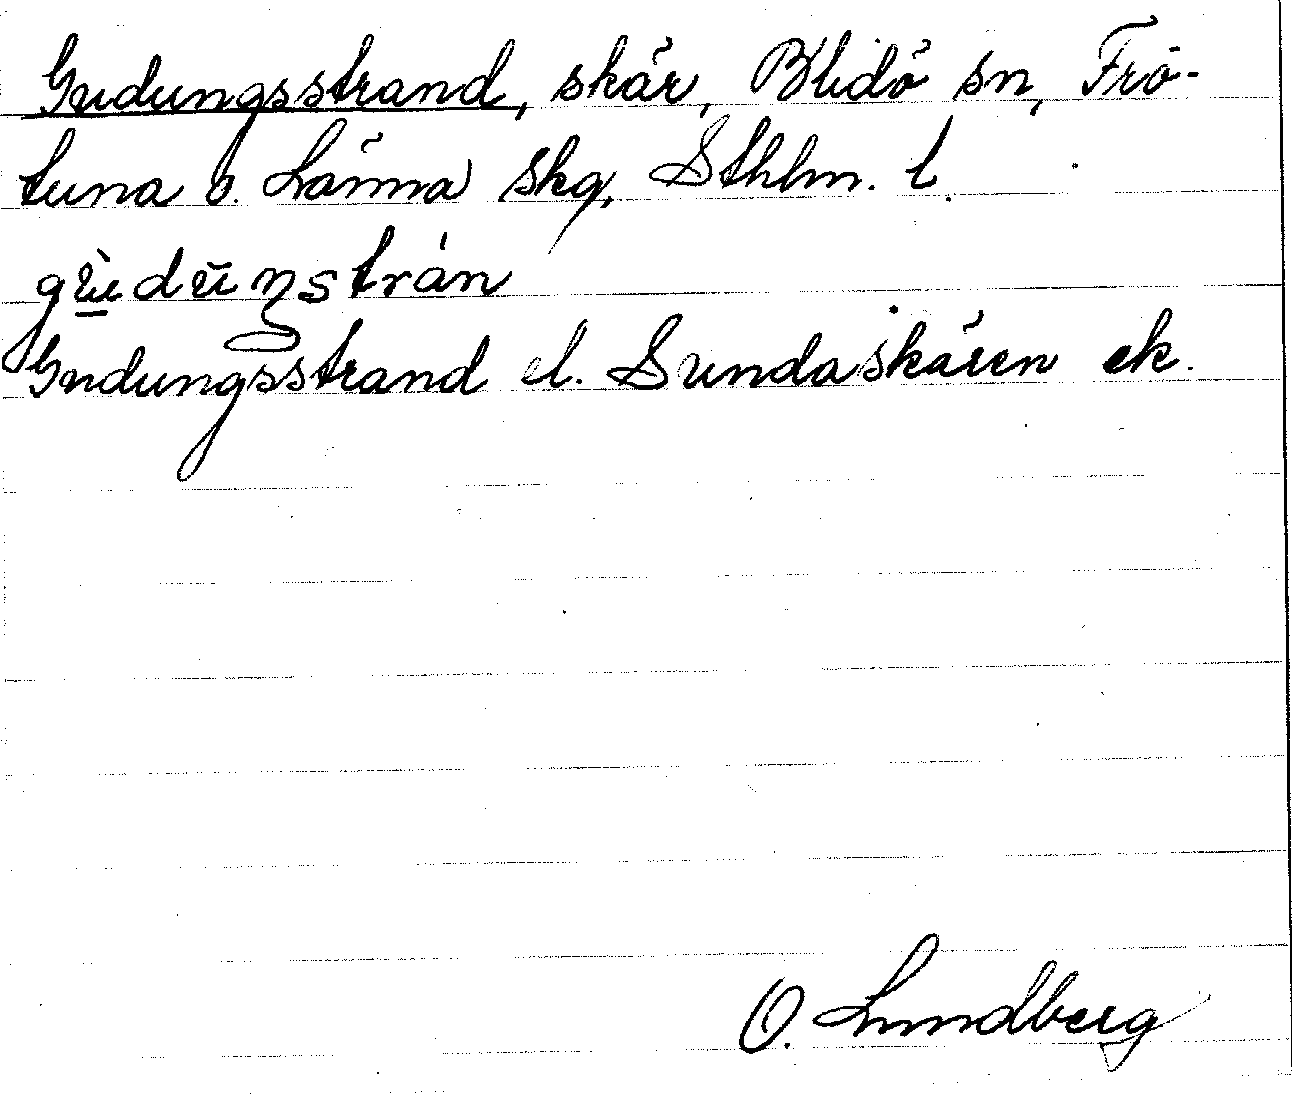 Gudungsstrand, skär, Blidö sn, Frö-
tuna o. Länna skg, Sthlm. l.
gùduŋstrán
Gudungsstrand el. Sundaskären ek.
O. Lundberg